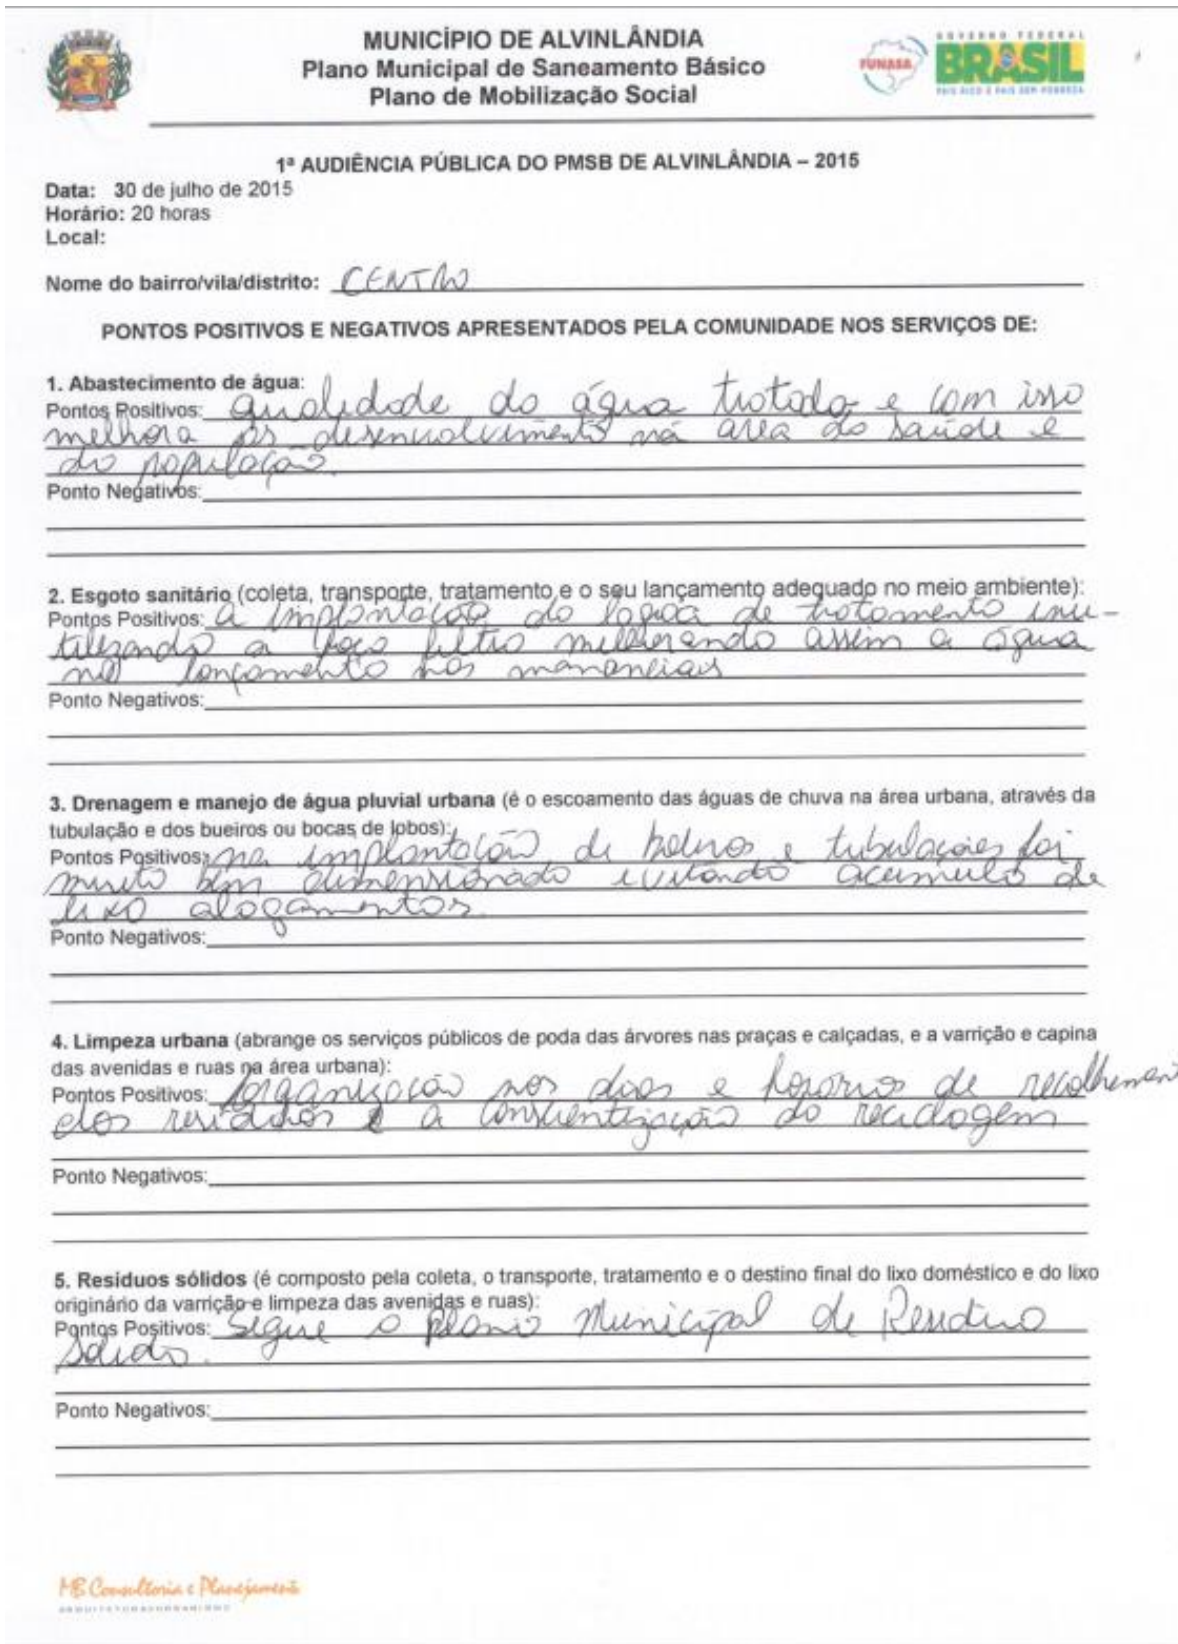 MUNICÍPIO DE ALVINLÂNDIA
Plano Municipal de Saneamento Básico
Plano de Mobilização Social
FUNASA
GOVERNO FEDERAL
BRASIL
PAÍS RICO É PAÍS SEM POBREZA
1ª AUDIÊNCIA PÚBLICA DO PMSB DE ALVINLÂNDIA – 2015
Data: 30 de julho de 2015
Horário: 20 horas
Local:
Nome do bairro/vila/distrito: CENTRO
PONTOS POSITIVOS E NEGATIVOS APRESENTADOS PELA COMUNIDADE NOS SERVIÇOS DE:
1. Abastecimento de água:
Pontos Positivos: qualidade da água tratada e com isso
melhora os desenvolvimento na área da saúde e
da população.
Ponto Negativos:
2. Esgoto sanitário (coleta, transporte, tratamento e o seu lançamento adequado no meio ambiente):
Pontos Positivos: a implantação da lagoa de tratamento inu-
tilizando a foço filtro melhorando assim a água
no lançamento nos mananciais
Ponto Negativos:
3. Drenagem e manejo de água pluvial urbana (é o escoamento das águas de chuva na área urbana, através da
tubulação e dos bueiros ou bocas de lobos):
Pontos Positivos: na implantação de e tubulações foi
muito bem dimensionado evitando acumulo de
lixo alagamentos.
Ponto Negativos:
4. Limpeza urbana (abrange os serviços públicos de poda das árvores nas praças e calçadas, e a varrição e capina
das avenidas e ruas na área urbana):
Pontos Positivos: organização nos dias e horários de recolhimen
dos residuos e a conscientização da reciclagem
Ponto Negativos:
5. Resíduos sólidos (é composto pela coleta, o transporte, tratamento e o destino final do lixo doméstico e do lixo
originário da varrição e limpeza das avenidas e ruas):
Pontos Positivos: Segue o plano Municipal de Residuo
Solido.
Ponto Negativos:
MB Consultoria e Planejamento
ARQUITETURA&URBANISMO